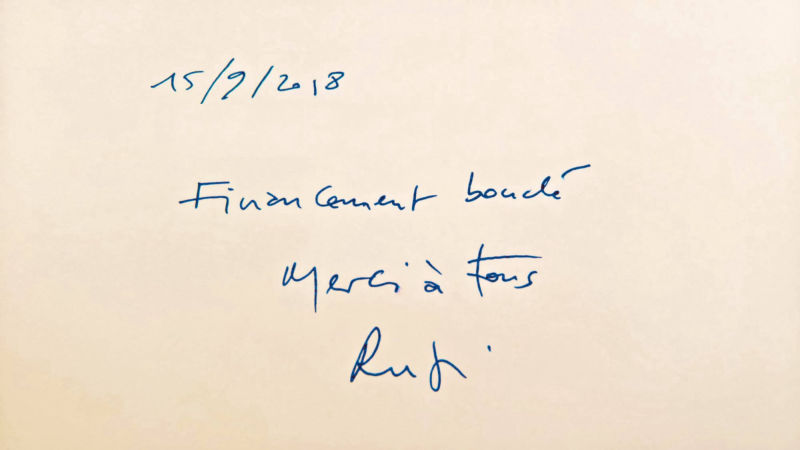 15/9/2018
Financement bouclé
Merci à tous